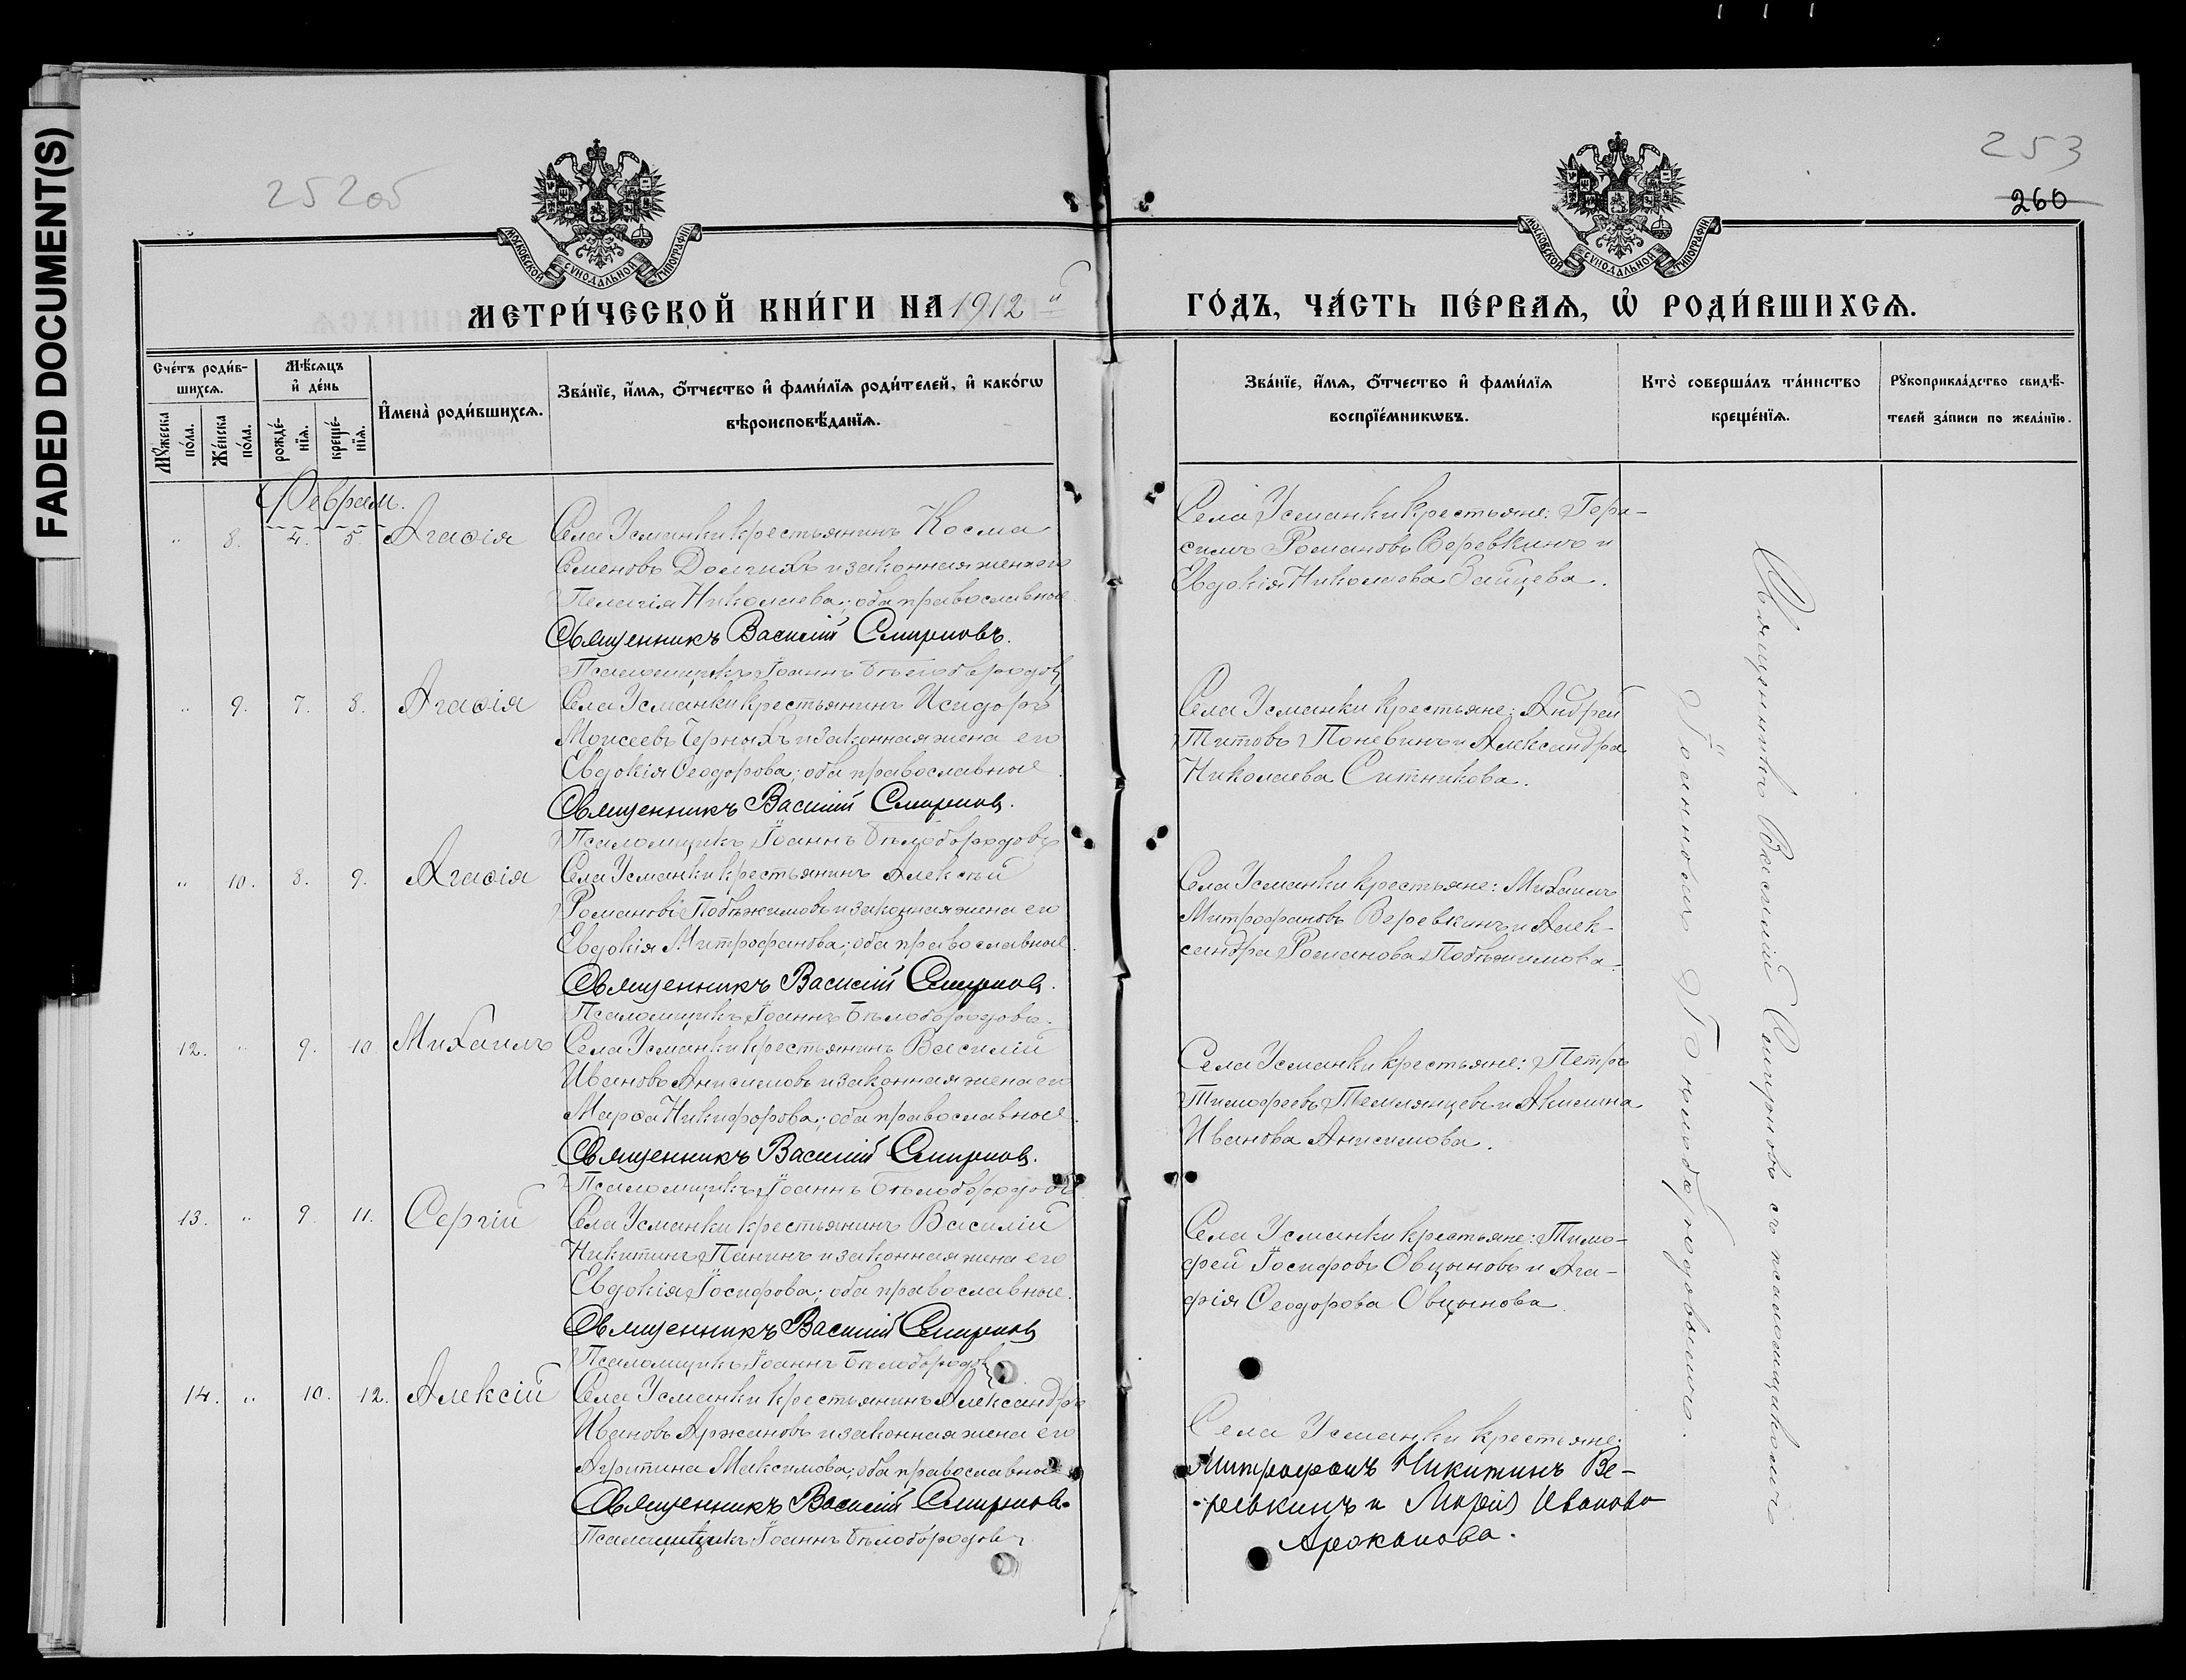 FADED DOCUMENT(S)
252об
253
260
МОСКОВСКОЙ СѴНОДАЛЬНОЙ ТИПОГРАФІИ
МОСКОВСКОЙ СѴНОДАЛЬНОЙ ТИПОГРАФІИ
МЕТРИ́ЧЕСКОЙ КНИ́ГИ НА 1912 й
ГО́ДЪ, ЧА́СТЬ ПЕ́РВАѦ, Ѽ РОДИ́ВШИХСѦ.
Сче́тъ роди́в-
шихсѧ.
Мꙋ́жеска по́ла.
Же́нска по́ла.
Мѣ́сѧцъ
и҆ де́нь
рожде́-
нїѧ.
креще́-
нїѧ.
И҆мена̀ роди́вшихсѧ.
Зва́нїе, и҆́мѧ, ѻ҆́тчество и҆ фами́лїѧ роди́телей, и҆ како́гѡ
вѣроисповѣ́данїѧ.
Зва́нїе, и҆́мѧ, ѻ҆́тчество и҆ фами́лїѧ
воспрїе́мникѡвъ.
Кто̀ соверша́лъ та́инство
креще́нїѧ.
Рꙋкоприкла́дство свидѣ́-
телей за́писи по жела́нїю.
Февраль.
" 8. 4. 5. Агаѳія
Села Усманки крестьянинъ Косма
Семеновъ Долгихъ и законная жена его
Пелагія Николаева; оба православные
Священникъ Василій Смирновъ.
Псаломщикъ Іоаннъ Бѣлобородовъ
Села Усманки крестьяне: Гера-
симъ Романовъ Веревкинъ и
Евдокія Николаева Зайцева.
" 9. 7. 8. Агаѳія
Села Усманки крестьянинъ Исидоръ
Моисеевъ Черныхъ и законная жена его
Евдокія Ѳеодорова; оба православные.
Священникъ Василій Смирновъ.
Псаломщикъ Іоаннъ Бѣлобородовъ
Села Усманки крестьяне: Андрей
Титовъ Поневинъ и Александра
Николаева Ситникова.
" 10. 8. 9. Агаѳія
Села Усманки крестьянинъ Алексѣй
Романовъ Побѣжимовъ и законная жена его
Евдокія Митрофанова; оба православные.
Священникъ Василій Смирновъ.
Псаломщикъ Іоаннъ Бѣлобородовъ.
Села Усманки крестьяне: Михаилъ
Митрофановъ Веревкинъ и Алек-
сандра Романова Побѣжимова.
12. " 9. 10. Михаилъ
Села Усманки крестьянинъ Василій
Ивановъ Анисимовъ и законная жена его
Марѳа Никифорова; оба православные.
Священникъ Василій Смирновъ.
Псаломщикъ Іоаннъ Бѣлобородовъ.
Села Усманки крестьяне: Петръ
Тимофеевъ Темлянцевъ и Акилина
Иванова Анисимова.
13. " 9. 11. Сергій
Села Усманки крестьянинъ Василій
Никитинъ Панинъ и законная жена его
Евдокія Іосифова; оба православные.
Священникъ Василій Смирновъ
Псаломщикъ Іоаннъ Бѣлобородовъ
Села Усманки крестьяне: Тимо-
фей Іосифовъ Овцыновъ и Ага-
фія Ѳеодорова Овцынова.
14. " 10. 12. Алексій
Села Усманки крестьянинъ Александръ
Ивановъ Аржановъ и законная жена его
Агрипина Максимова; оба православные
Священникъ Василій Смирновъ.
Псаломщикъ Іоаннъ Бѣлобородовъ
Села Усманки крестьяне:
Митрофанъ Никитинъ Ве-
ревкинъ и Марія Иванова
Аржанова.
Священникъ Василій Смирновъ съ псаломщикомъ
Іоанномъ Бѣлобородовымъ.